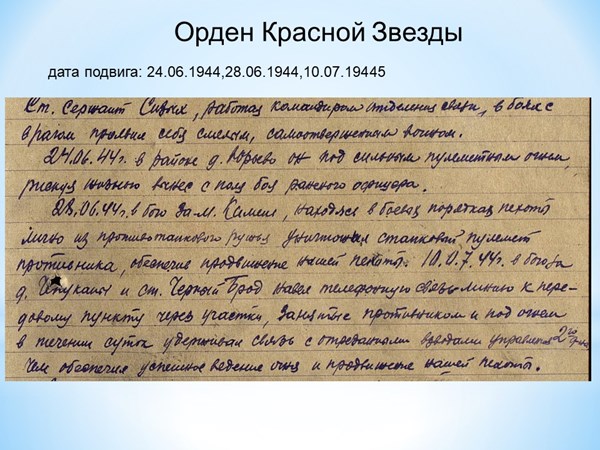 Орден Красной Звезды
дата подвига: 24.06.1944,28.06.1944,10.07.19445
Ст. Сержант Сивых, работая командиром отделения связи, в боях с
врагом проявил себя смелым, самоотверженным воином.
24.06.44г. в районе д. он под сильным пулеметным огнем,
рискуя жизнью вынес с поля боя раненого офицера.
28.06.44г. в бою за м. Камень, находясь в боевых порядках пехоты
лично из противотанкового ружья уничтожил станковый пулемет
противника, обеспечив продвижение нашей пехоты. 10.07.44г. в бою за
д. и ст. Черный Брод навел телефонную связь линию к пере-
довому пункту через участки, занятые противником и под огнем
в течении суток удерживал связь с взводами управления
Чем обеспечил успешное ведение огня и продвижение нашей пехоты.